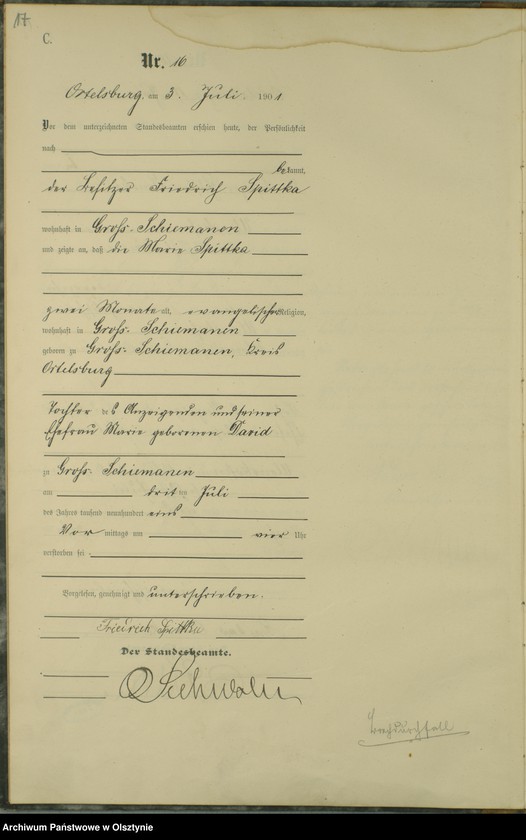 17
C.
Nr. 16
Ortelsburg, am 3. Juli 1901.
Vor dem unterzeichneten Standesbeamten erschien heute, der Persönlichkeit
nach
bekannt,
der Besitzer Friedrich Spittka
wohnhaft in Groß-Schiemanen
und zeigte an, daß die Marie Spittka
zwei Monate alt, evangelischer Religion,
wohnhaft in Groß-Schiemanen
geboren zu Groß-Schiemanen, Kreis
Ortelsburg
Tochter des Anzeigenden und seiner
Ehefrau Marie geborenen David
zu Groß-Schiemanen
am dritten Juli
des Jahres tausend neunhundert eins
Vor mittags um vier Uhr
verstorben sei.
Vorgelesen, genehmigt und unterschrieben.
Friedrich Spittka
Der Standesbeamte.
Brechdurchfall
Archiwum Państwowe w Olsztynie